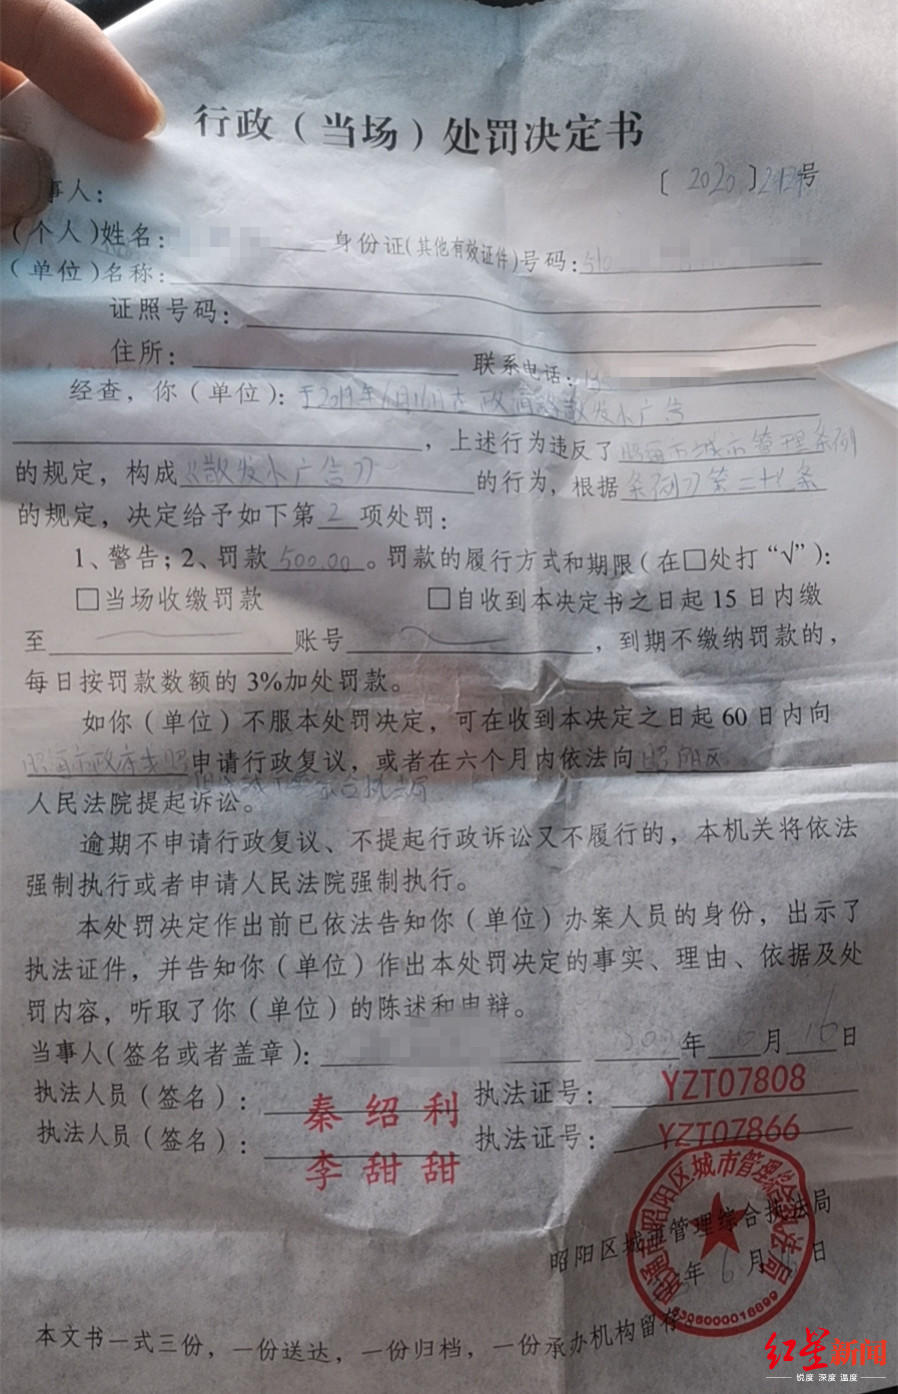 行政（当场）处罚决定书
〔2020〕 号
事人：
（个人）姓名： 身份证（其他有效证件）号码：510
（单位）名称：
证照号码：
住所： 联系电话：
经查，你（单位）：于2019年6月16日在 散发小广告
，上述行为违反了 城市管理条例
的规定，构成《散发小广告》的行为，根据条例》第二十七条
的规定，决定给予如下第2项处罚：
1、警告；2、罚款500.00。罚款的履行方式和期限（在□处打“√”）：
□当场收缴罚款 □自收到本决定书之日起15日内缴
至 账号 ，到期不缴纳罚款的，
每日按罚款数额的3%加处罚款。
如你（单位）不服本处罚决定，可在收到本决定之日起60日内向
申请行政复议，或者在六个月内依法向昭阳区
人民法院提起诉讼。
逾期不申请行政复议、不提起行政诉讼又不履行的，本机关将依法
强制执行或者申请人民法院强制执行。
本处罚决定作出前已依法告知你（单位）办案人员的身份，出示了
执法证件，并告知你（单位）作出本处罚决定的事实、理由、依据及处
罚内容，听取了你（单位）的陈述和申辩。
当事人（签名或者盖章）： 年 月16日
执法人员（签名）：秦绍利 执法证号：YZT07808
执法人员（签名）：李甜甜 执法证号：YZT07866
昭通市昭阳区城市管理综合执法局
5306000018899
昭阳区城市管理综合执法局
年6月 日
本文书一式三份，一份送达，一份归档，一份承办机构留存
红星新闻
锐度 深度 温度